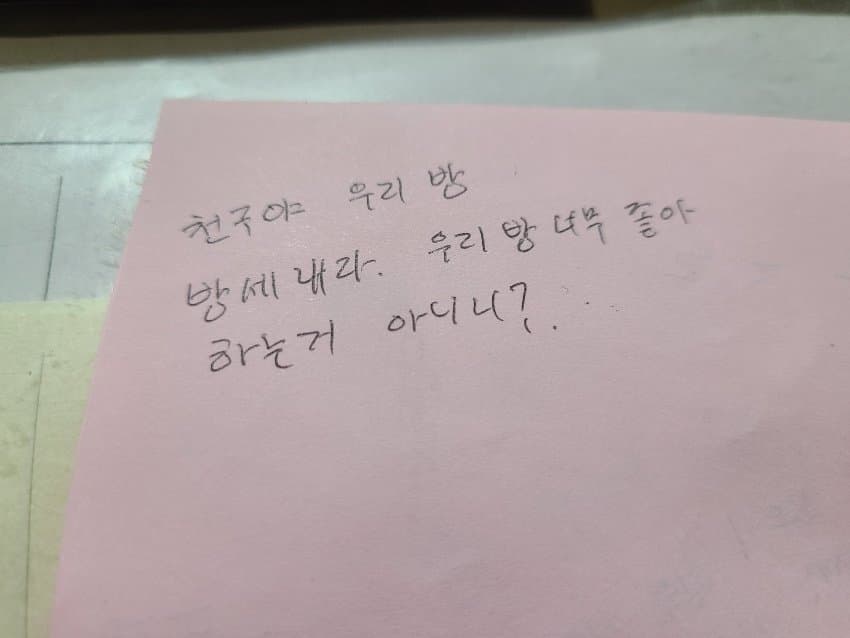 천구야 우리 방
방세내라. 우리 방 너무 좋아
하는거 아니니?...